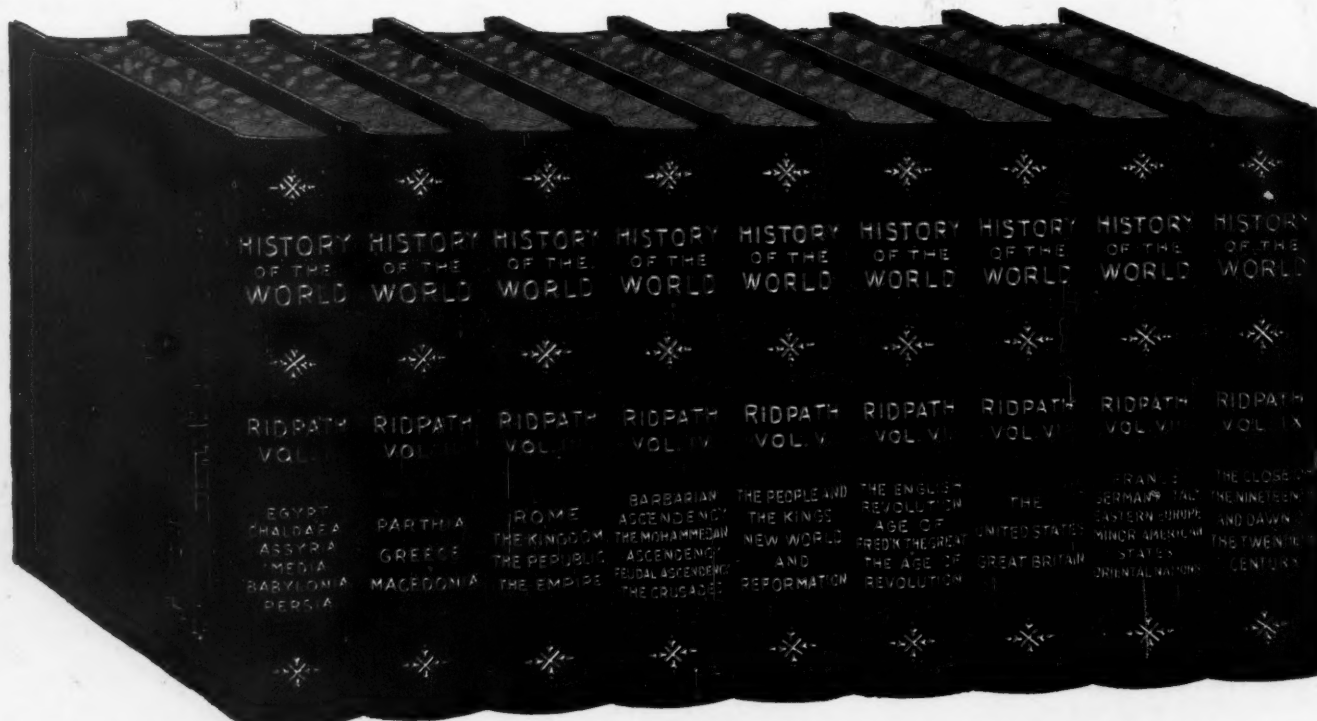 HISTORY
OF THE
WORLD
RIDPATH
VOL. I
EGYPT
CHALDAEA
ASSYRIA
MEDIA
BABYLONIA
PERSIA
HISTORY
OF THE
WORLD
RIDPATH
VOL.
PARTHIA
GREECE
MACEDONIA
HISTORY
OF THE
WORLD
RIDPATH
VOL.
ROME
THE KINGDOM
THE REPUBLIC
THE EMPIRE
HISTORY
OF THE
WORLD
RIDPATH
VOL. IV
BARBARIAN
ASCENDENCY
THE MOHAMMEDAN
ASCENDENCY
FEUDAL ASCENDENCY
THE CRUSADES
HISTORY
OF THE
WORLD
RIDPATH
VOL. V
THE PEOPLE AND
THE KINGS
NEW WORLD
AND
REFORMATION
HISTORY
OF THE
WORLD
RIDPATH
VOL. VI
THE ENGLISH
REVOLUTION
AGE OF
FRED'K THE GREAT
THE AGE OF
REVOLUTION
HISTORY
OF THE
WORLD
RIDPATH
VOL.
THE
UNITED STATES
GREAT BRITAIN
HISTORY
OF THE
WORLD
RIDPATH
VOL.
FRANCE
GERMANY ITALY
EASTERN EUROPE
MINOR AMERICAN
STATES
ORIENTAL NATIONS
HISTORY
OF THE
WORLD
RIDPATH
VOL. IX
THE CLOSE OF
THE NINETEENTH
AND DAWN OF
THE TWENTIETH
CENTURY